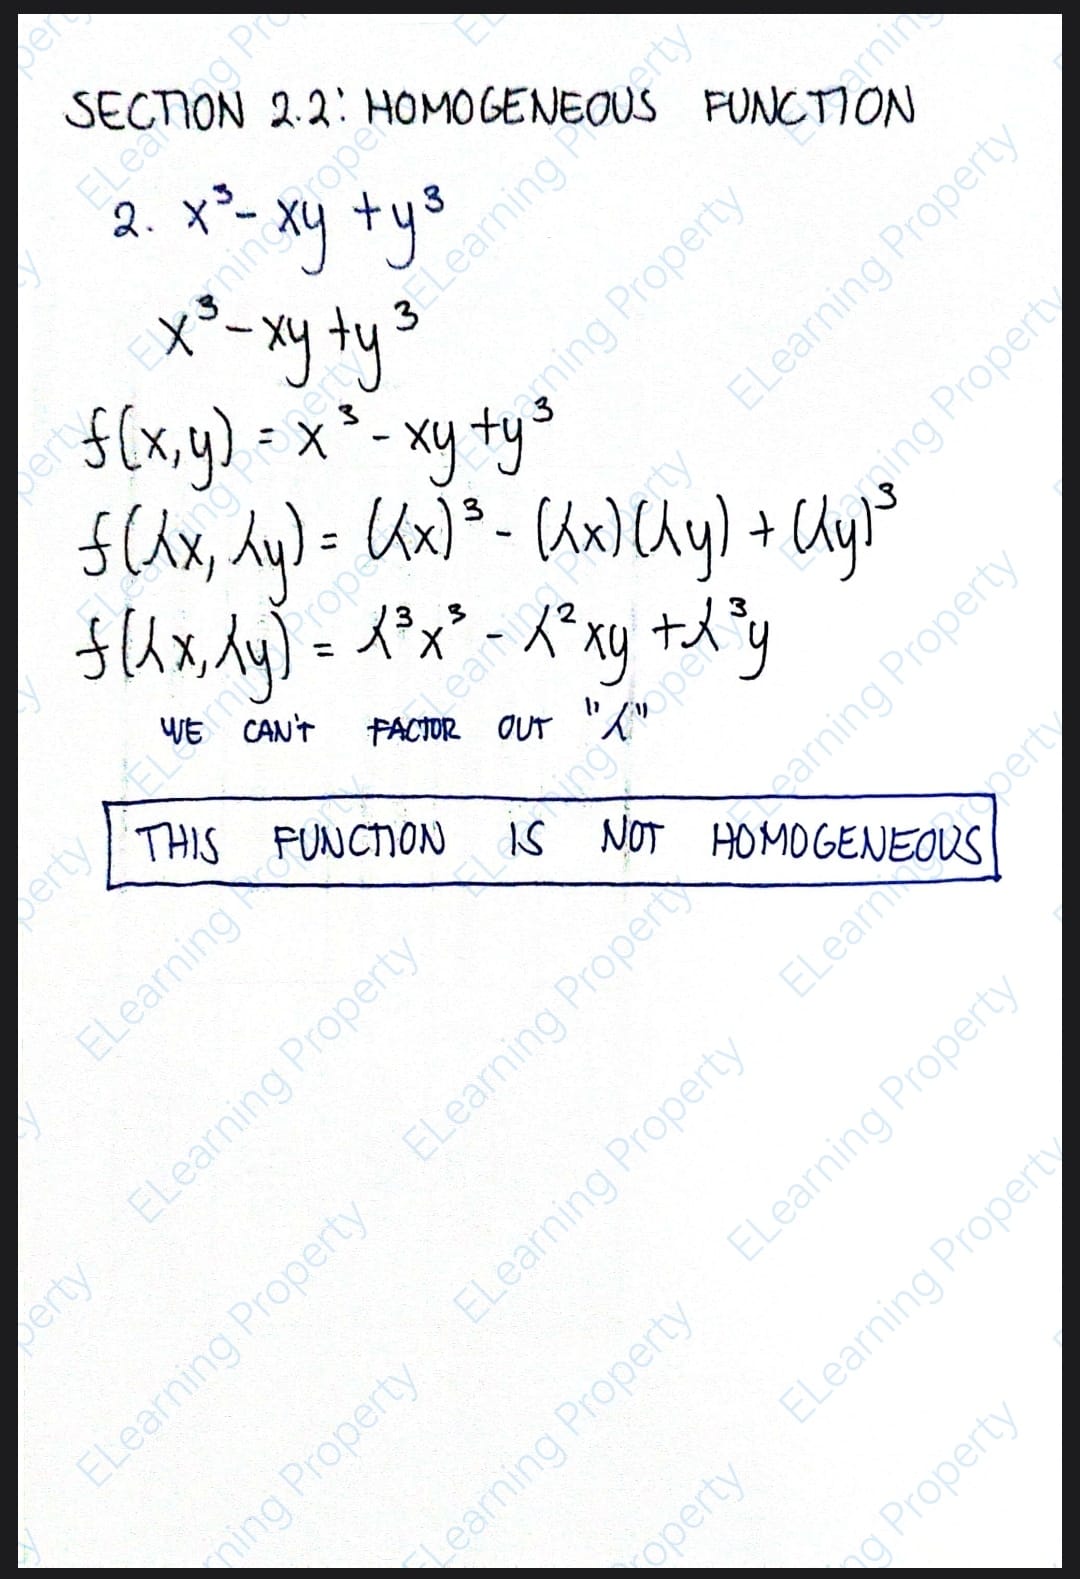 SECTION 2.2: HOMOGENEOUS FUNCTION
2. x³ - xy + y³
x³ - xy + y³
f(x,y) = x³ - xy + y³
f(λx, λy) = (λx)³ - (λx)(λy) + (λy)³
f(λx, λy) = λ³x³ - λ²xy + λ³y
WE CAN'T FACTOR OUT "λ"
THIS FUNCTION IS NOT HOMOGENEOUS
ELearning Property